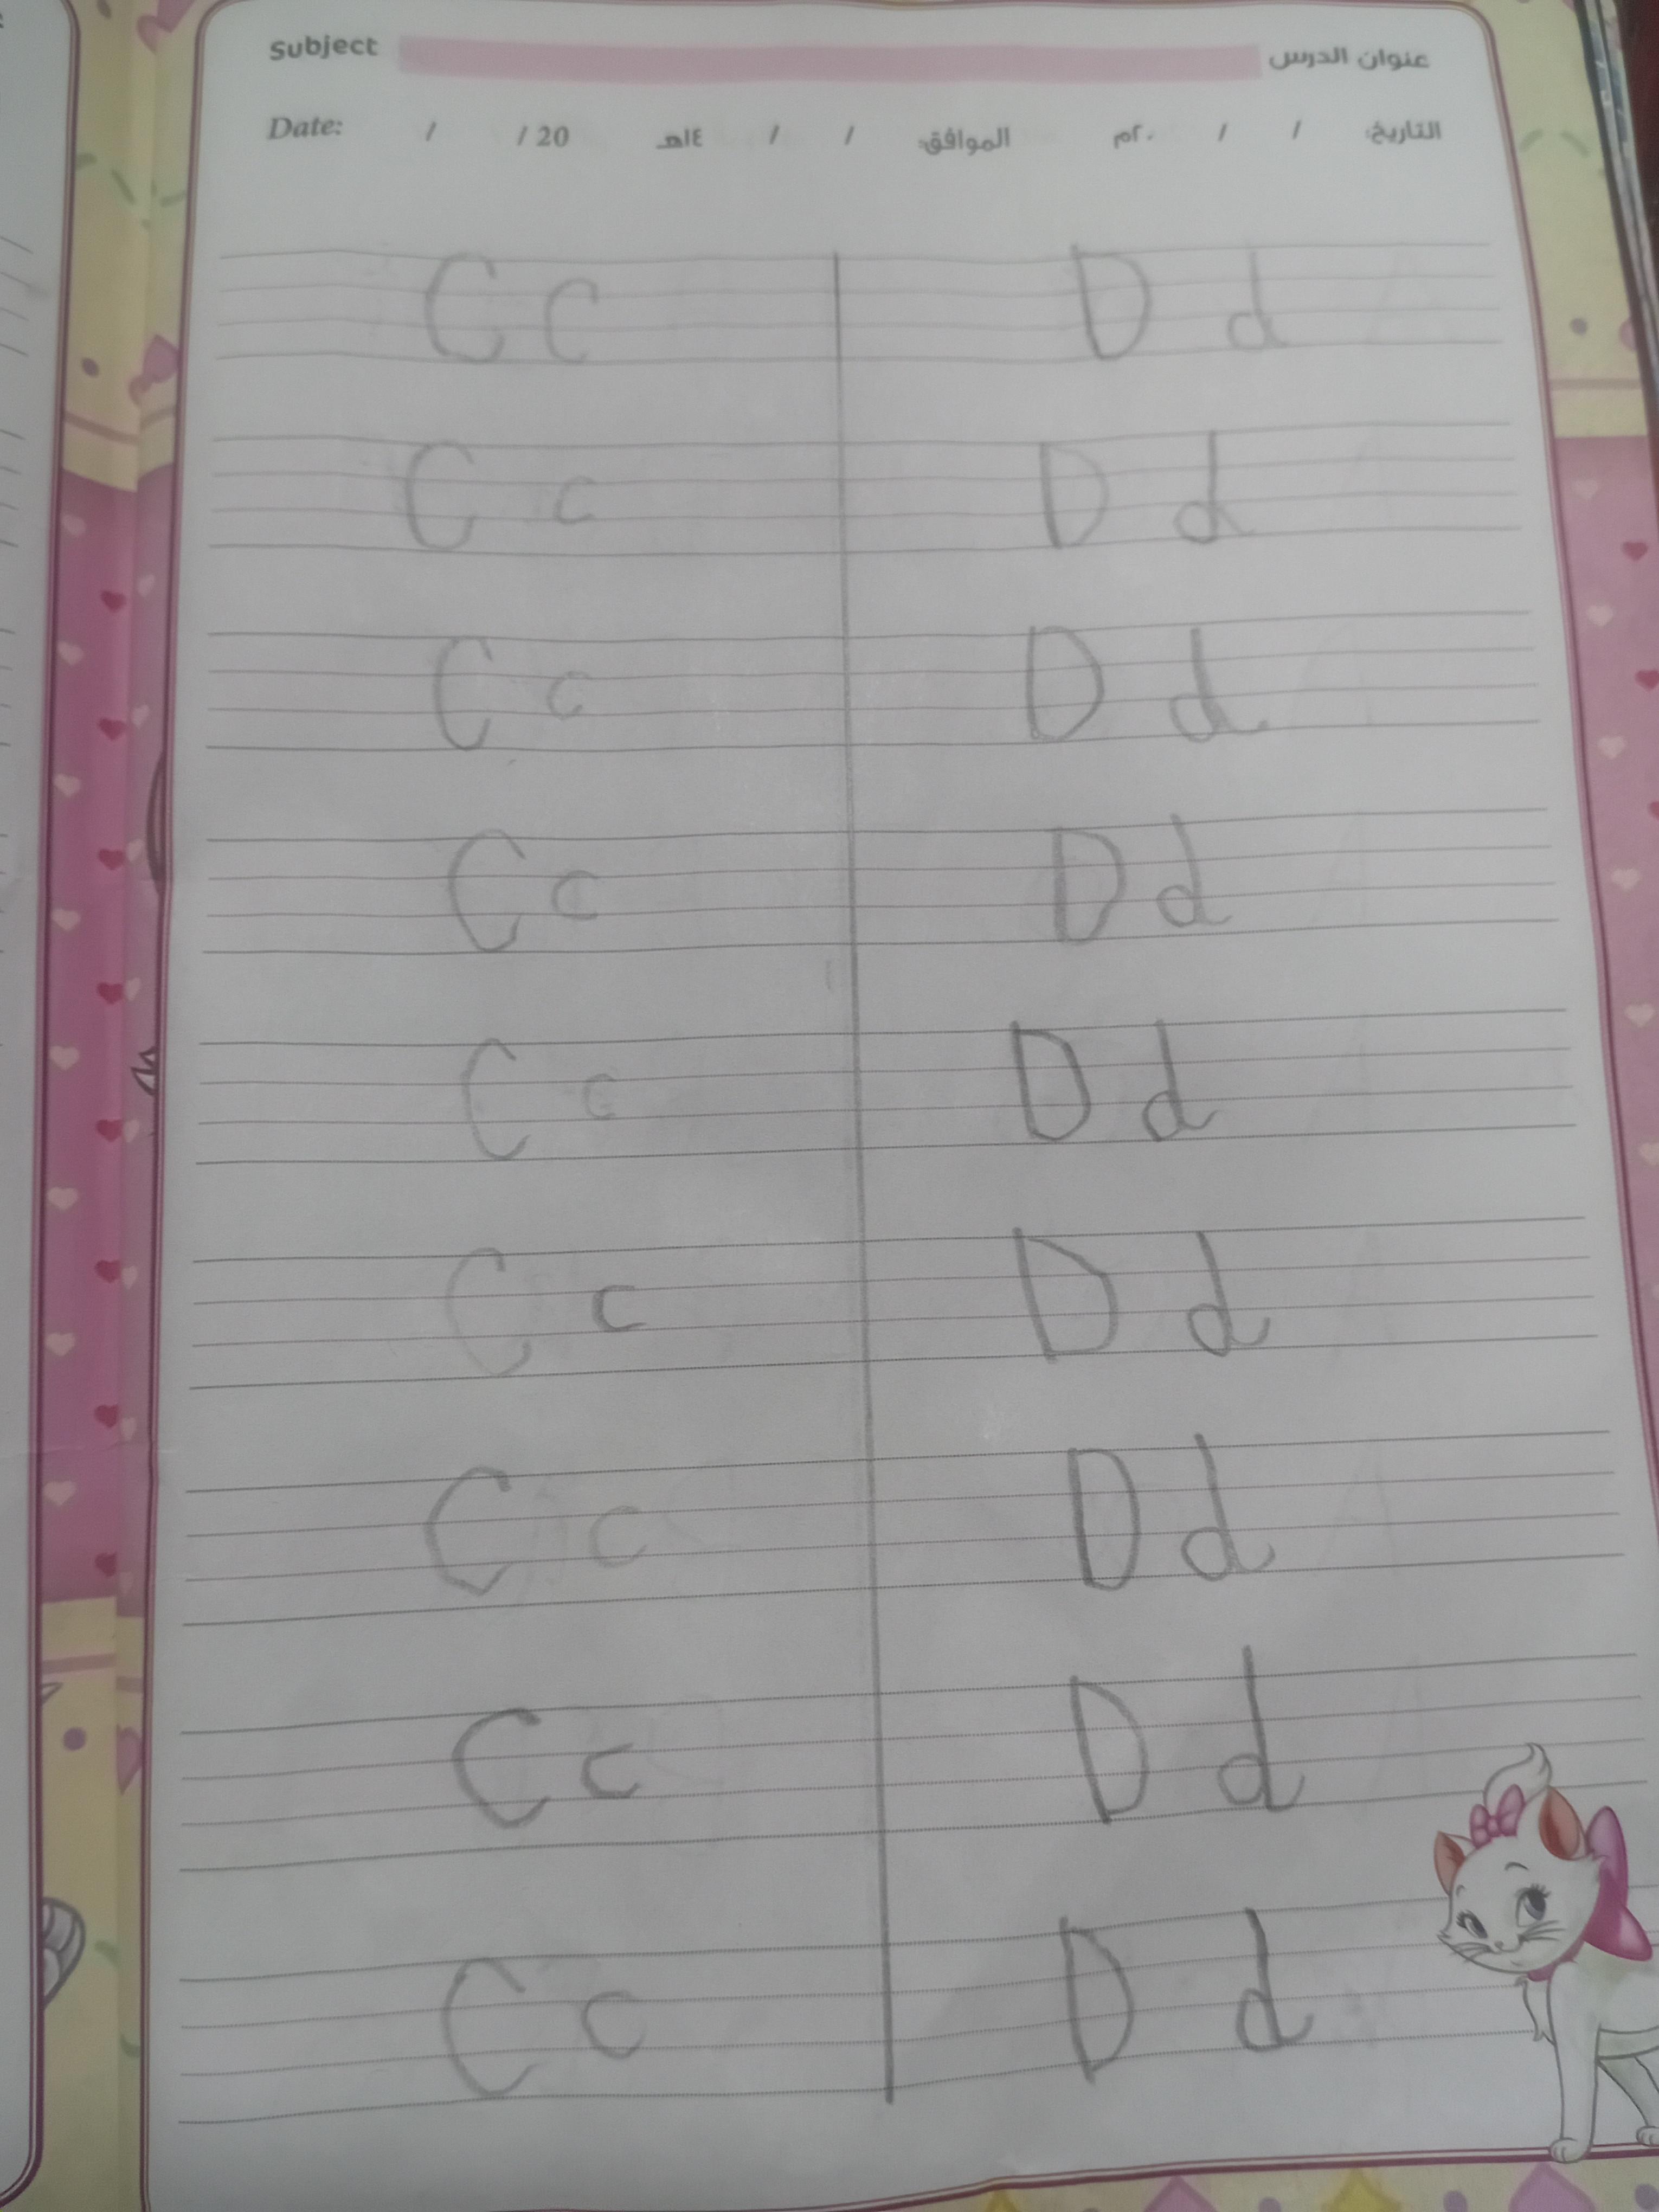 Subject عنوان الدرس
Date: / / 20 التاريخ: / / ٢٠م الموافق: / / ١٤هـ
C c D d
C c D d
C c D d
C c D d
C c D d
C c D d
C c D d
C c D d
C c D d